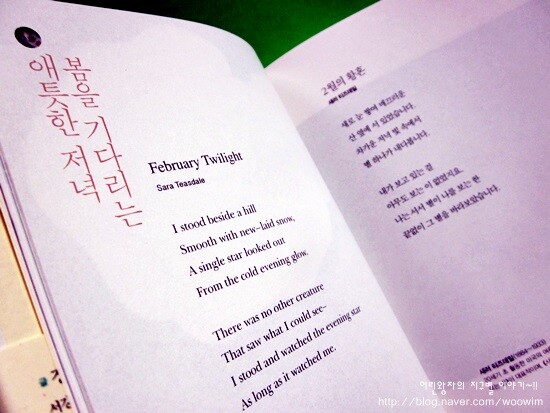 봄을 기다리는
애틋한 저녁
February Twilight
Sara Teasdale
I stood beside a hill
Smooth with new-laid snow,
A single star looked out
From the cold evening glow.
There was no other creature
That saw what I could see-
I stood and watched the evening star
As long as it watched me.
2월의 황혼
새러 티즈데일
새로 눈 쌓여 매끄러운
산 옆에 서 있었습니다.
차가운 저녁 빛 속에서
별 하나가 내다봅니다.
내가 보고 있는 걸
아무도 보는 이 없었지요.
나는 서서 별이 나를 보는 한
끝없이 그 별을 바라보았습니다.
새러 티즈데일(1884~1933)
어린왕자의 지구별 이야기~!!
http://blog.naver.com/woowim